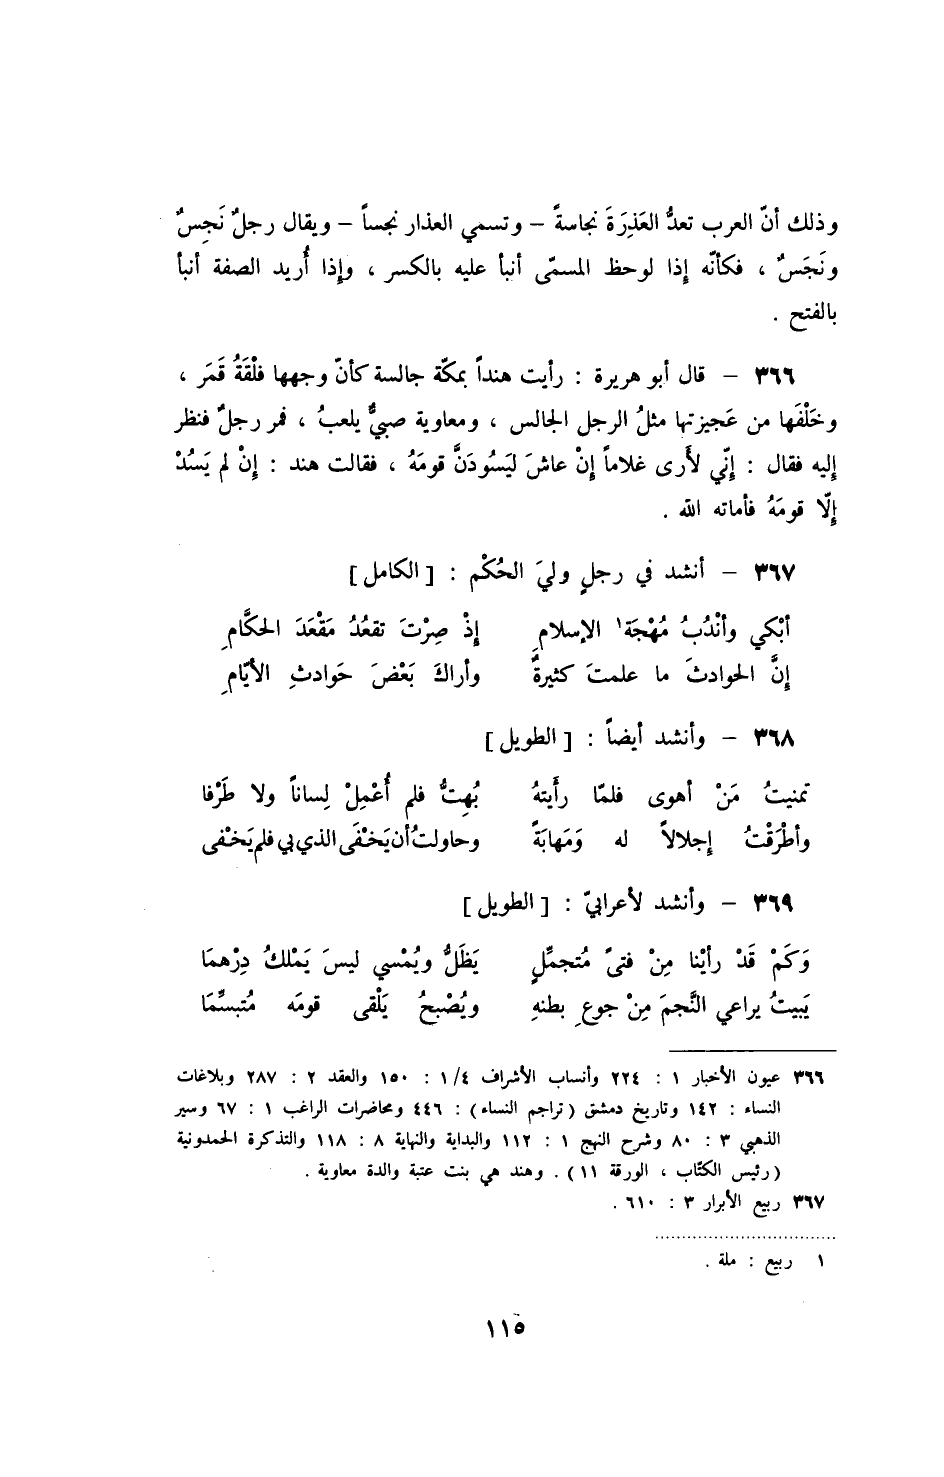 وذلك أنّ العرب تعدُّ العَذِرَةَ نجاسةً – وتسمي العذار نجساً – ويقال رجلٌ نَجِسٌ
ونَجَسٌ ، فكأنّه إذا لوحظ المسمّى أنبأ عليه بالكسر ، وإذا أُريد الصفة أنبأ
بالفتح .
٣٦٦ – قال أبو هريرة : رأيت هنداً بمكّة جالسة كأنّ وجهها فلْقَةُ قَمَر ،
وخَلْفَها من عَجيزتها مثلُ الرجل الجالس ، ومعاوية صبيٌّ يلعبُ ، فمر رجلٌ فنظر
إليه فقال : إنّي لأَرى غلاماً إنْ عاشَ ليَسُودَنَّ قومَهُ ، فقالت هند : إنْ لم يَسُدْ
إلّا قومَهُ فأماته الله .
٣٦٧ – أنشد في رجلٍ وليَ الحُكْم : [ الكامل ]
أبْكي وأنْدُبُ مُهْجَة١ الإسلامِ إذْ صِرْتَ تقعُدُ مَقْعَدَ الحكَّامِ
إنَّ الحوادثَ ما علمتَ كثيرةٌ وأراكَ بَعْضَ حَوادثِ الأيّامِ
٣٦٨ – وأنشد أيضاً : [ الطويل ]
تمنيتُ مَنْ أهوى فلمّا رأَيتهُ بُهِتُّ فلم أُعْمِلْ لِساناً ولا طَرْفا
وأطْرَقْتُ إجلالاً له وَمَهابَةً وحاولتُ أن يَخْفَى الذي بي فلم يَخْفى
٣٦٩ – وأنشد لأعرابيّ : [ الطويل ]
وَكَمْ قَدْ رأيْنا مِنْ فتىً مُتجمِّلٍ يَظَلُّ ويُمْسي ليسَ يَمْلكُ دِرْهمَا
يَبيتُ يراعي النَّجمَ مِنْ جوعِ بطنهِ ويُصْبحُ يَلْقى قومَه مُتبسِّمَا
٣٦٦ عيون الأخبار ١ : ٢٢٤ وأنساب الأشراف ٤/١ : ١٥٠ والعقد ٢ : ٢٨٧ وبلاغات
النساء : ١٤٢ وتاريخ دمشق (تراجم النساء) : ٤٤٦ ومحاضرات الراغب ١ : ٦٧ وسير
الذهبي ٣ : ٨٠ وشرح النهج ١ : ١١٢ والبداية والنهاية ٨ : ١١٨ والتذكرة الحمدونية
(رئيس الكتّاب ، الورقة ١١) . وهند هي بنت عتبة والدة معاوية .
٣٦٧ ربيع الأبرار ٣ : ٦١٠ .
١ ربيع : ملة .
١١٥